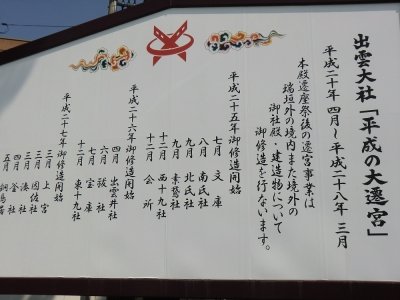 出雲大社「平成の大遷宮」
平成二十年 四月～平成二十八年 三月
本殿遷座祭後の遷宮事業は
瑞垣外の境内また境外の
御社殿・建造物について
御修造を行ないます。
平成二十五年御修造開始
七月 文庫
八月 南氏社
九月 北氏社
九月 素鵞社
十二月 西十九社
十二月 会所
平成二十六年御修造開始
四月 出雲井社
六月 祓社
七月 宝庫
十二月 東十九社
平成二十七年御修造開始
三月 上宮
三月 因佐社
三月 湊社
四月 釜社
五月